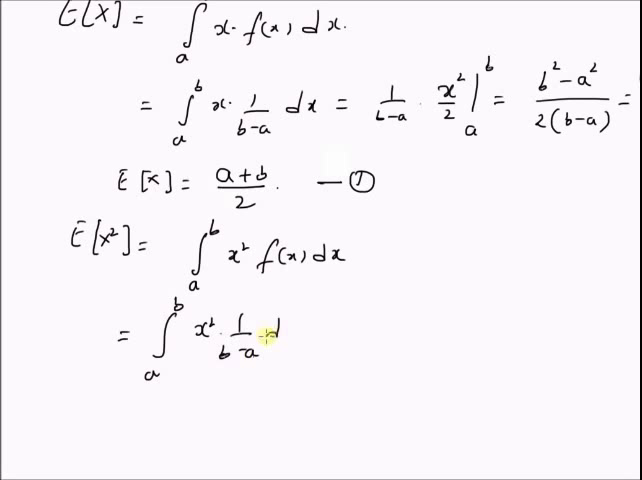 E[X] = ∫ₐ x· f(x) dx.
= ∫ₐᵇ x· 1/(b-a) dx = 1/(b-a) · x²/2 |ₐᵇ = (b² - a²)/(2(b-a)) =
E[x] = (a+b)/2 . — ①
E[x²] = ∫ₐᵇ x² f(x) dx
= ∫ₐᵇ x² · 1/(b-a) d